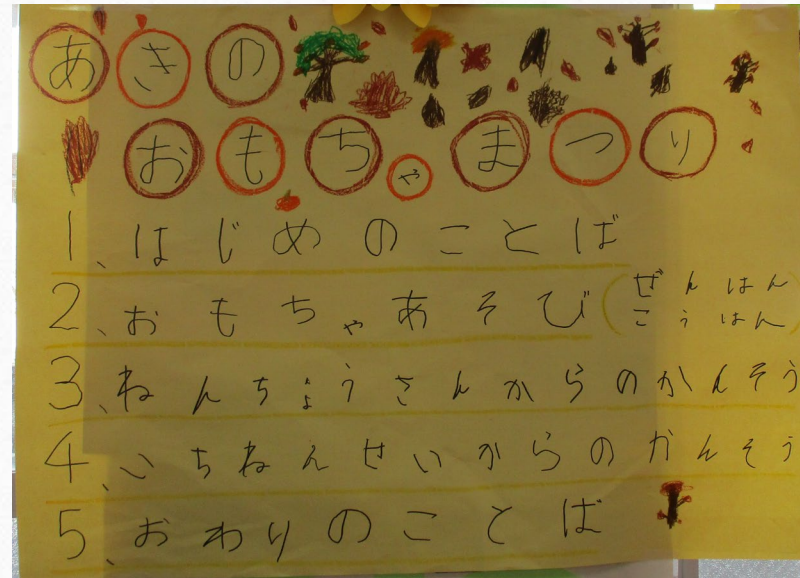 あきの
おもちゃまつり
1、はじめのことば
2、おもちゃあそび(ぜんはん
こうはん)
3、ねんちょうさんからのかんそう
4、いちねんせいからのかんそう
5、おわりのことば